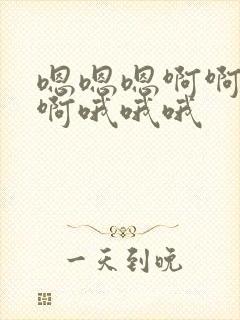 嗯嗯嗯啊啊
啊哦哦哦
一天到晚